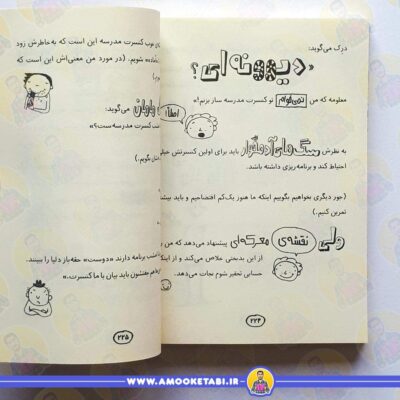 درک می‌گوید:
«دیوونه‌ای؟
معلومه که من نمی‌خوام تو کنسرت مدرسه ساز بزنم!»
به نظرش سگ‌های آدمخوار باید برای اولین کنسرتش
احتیاط کند و برنامه‌ریزی داشته باشد.
(جور دیگری بخواهیم بگوییم اینکه ما هنوز یک‌کم افتضاحیم و باید
تمرین کنیم.)
ولی نقشه‌ی معرکه‌ای پیشنهاد می‌دهد که من
از این بدبختی خلاص می‌کند و از
حسابی تحقیر شوم نجات می‌دهد.
۲۲۴
خوب کنسرت مدرسه این است که به‌خاطرش زود
شویم. (در مورد من معنی‌اش این است که
می‌گوید:
کنسرت مدرسه‌ست؟»
برنامه دارند «دوست» حقه‌باز دلیا را ببینند.
باید بیان با ما کنسرت.»
۲۲۵
WWW.AMOOKETABI.IR